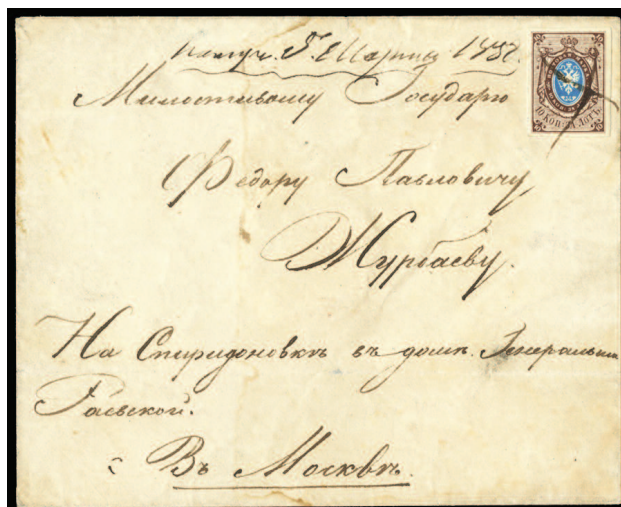 получ. Марта 1858.
Милостивому Государю
Федору Павловичу
Журбаеву.
На Спиридоновкѣ въ домѣ. Генеральши
Раевской.
Въ Москвѣ.
10 КОП. ЗА ЛОТЪ